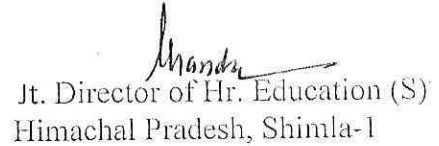 Jt. Director of Hr. Education (S)
Himachal Pradesh, Shimla-1